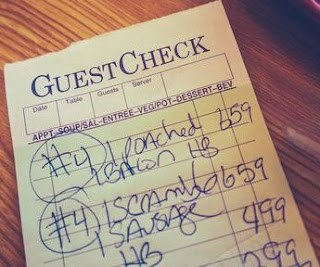 GUESTCHECK
Date Table Guests Server
APPT-SOUP/SAL-ENTREE-VEG/POT-DESSERT-BEV
#4 1 Poached 659
1 Bacon HB
#4 1 Scramble 659
1 Sausage 499
HB 299